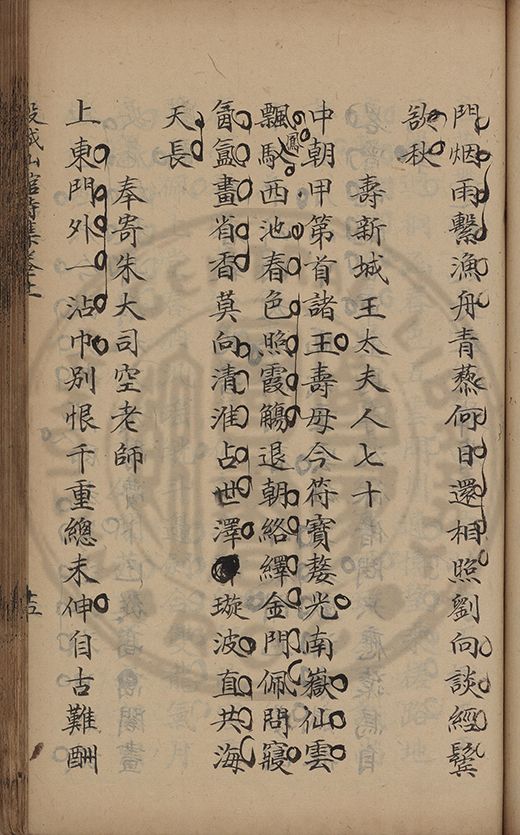 門烟雨繫漁舟青藜何日還相照劉向談經鬓
欲秋
壽新城王太夫人七十
中朝甲第首諸王壽母今符寶婺光南嶽仙雲
飄鳳馭西池春色照霞觴退朝絡繹金門佩問寢
氤氳畫省香莫向清淮占世澤璇波直共海
天長
奉寄朱大司空老師
上東門外一沾巾別恨千重總未伸自古難酬
城山館詩集卷上